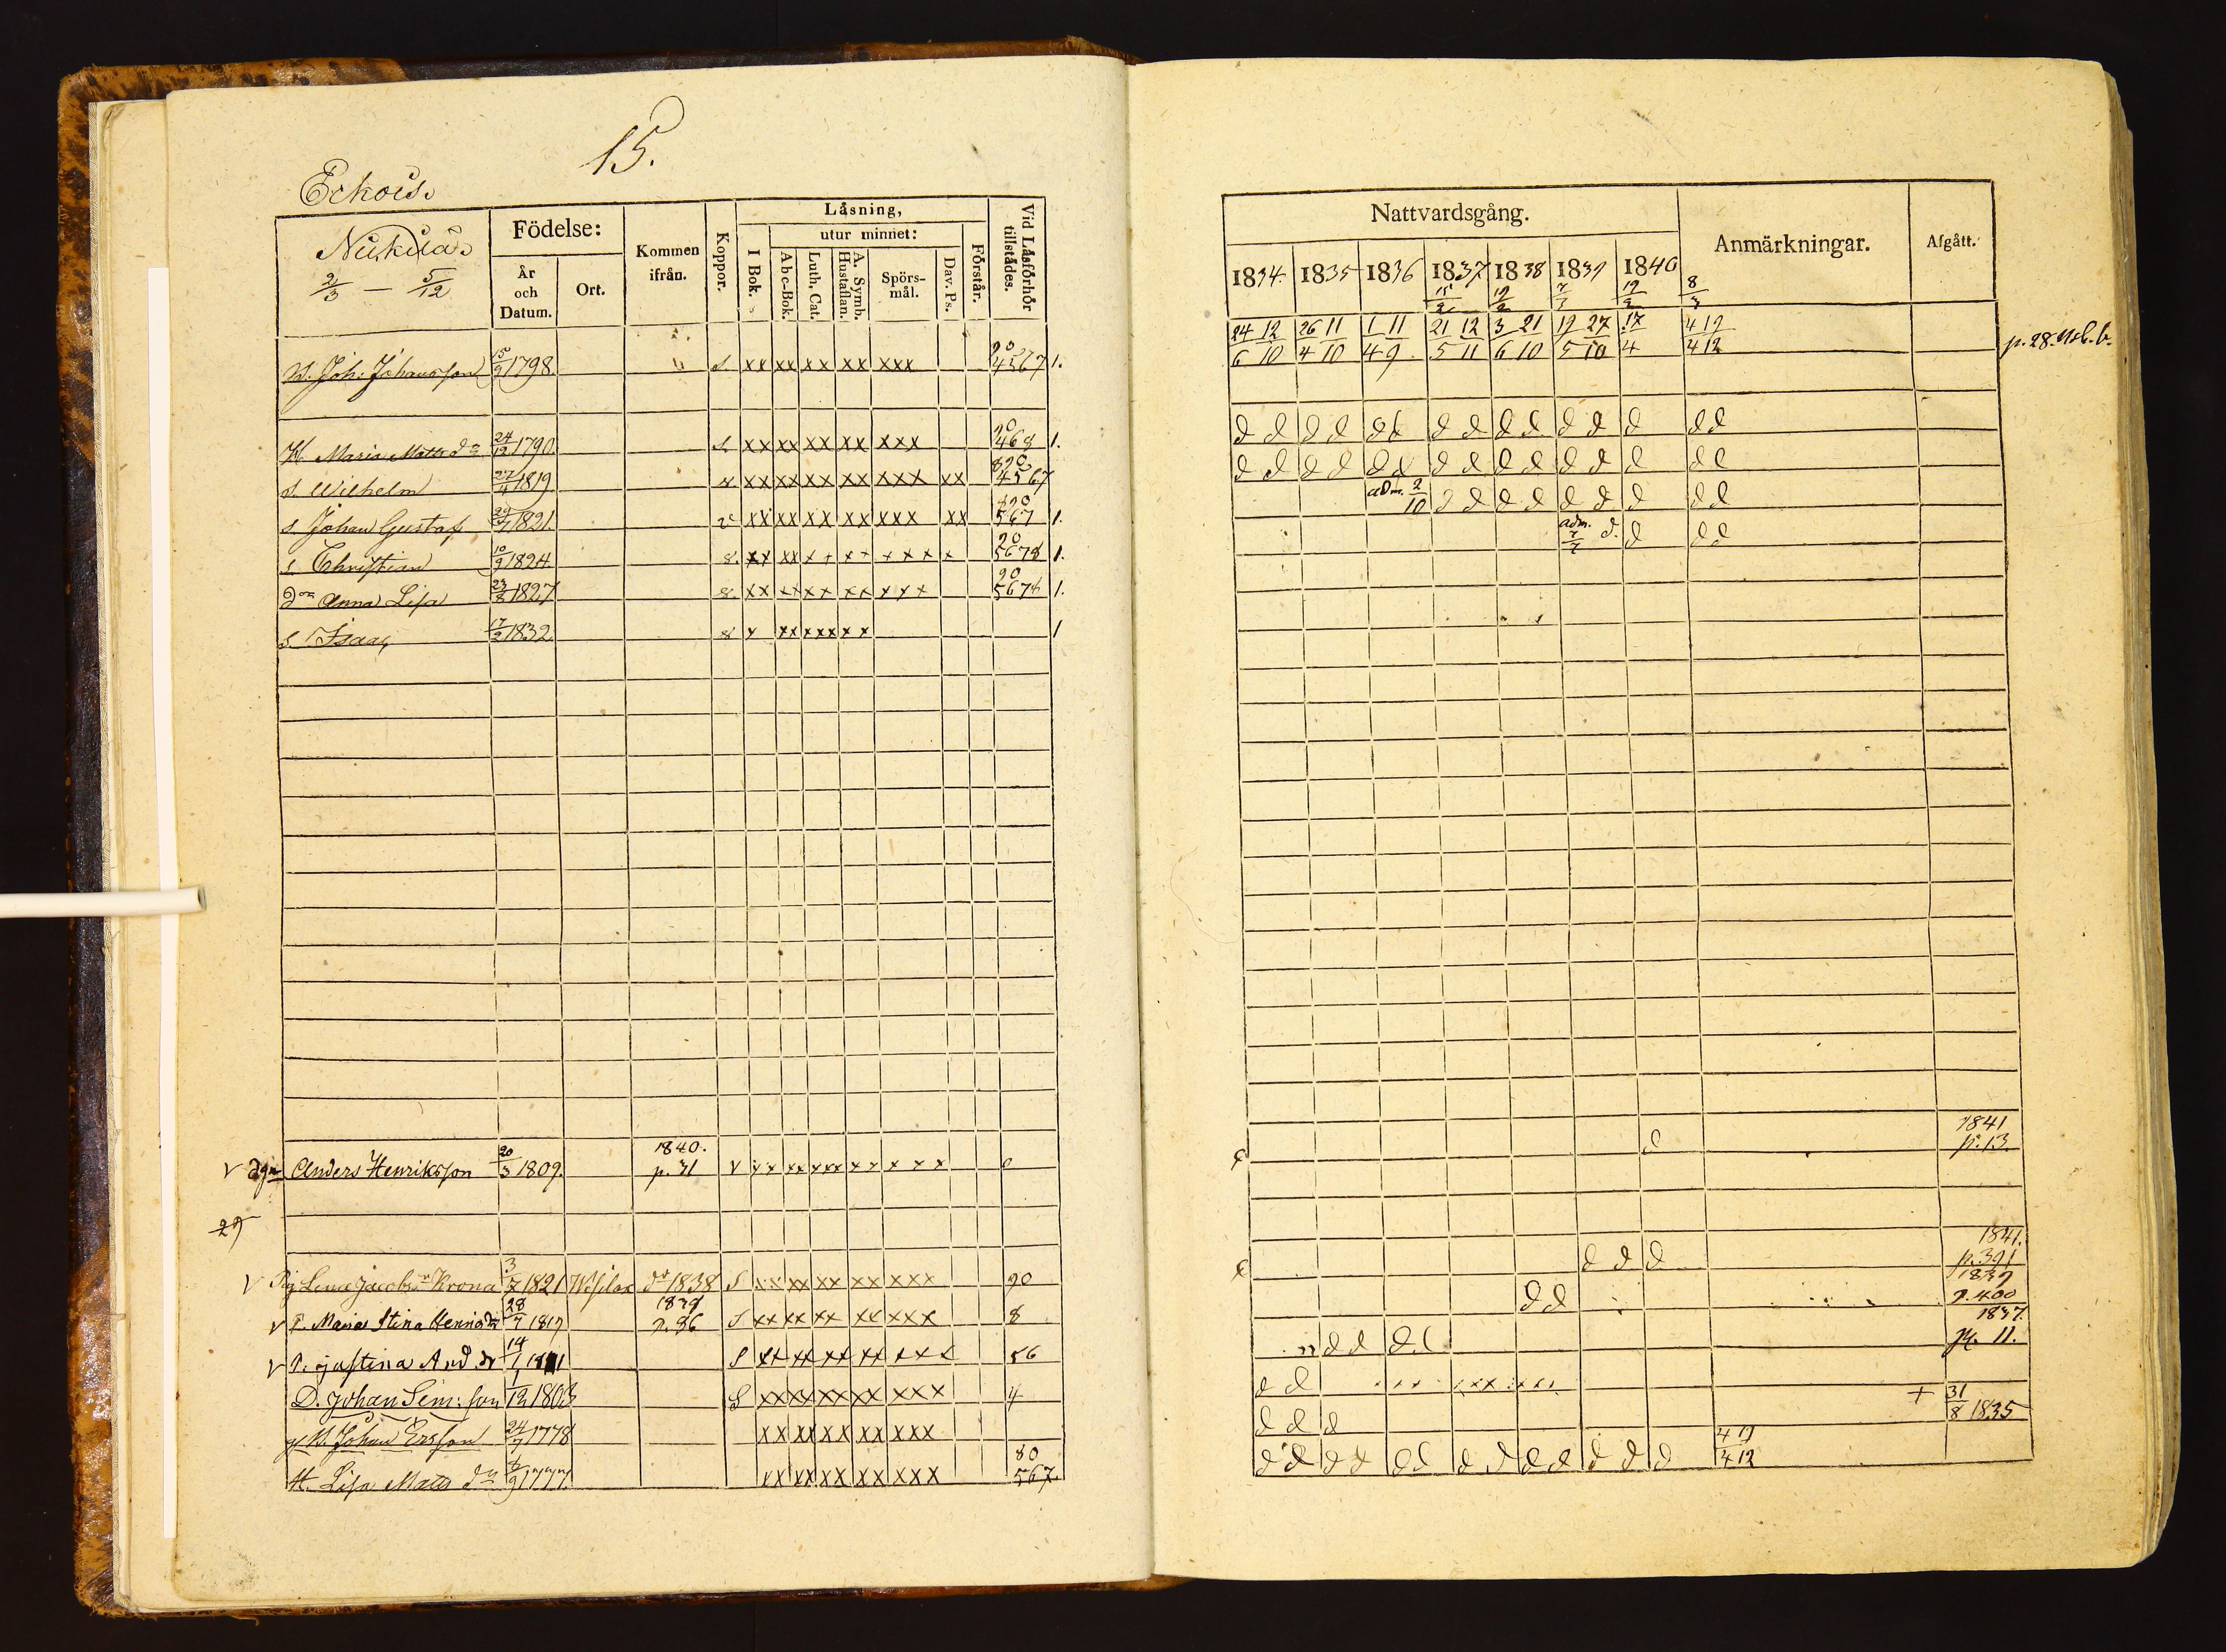 15.
Erkois.
Nukula
2/3 — 5/12
Födelse:
År och Datum.
Ort.
Kommen ifrån.
Koppor.
Läsning,
I Bok.
utur minnet:
Abc-Bok.
Luth. Cat.
A. Symb. Hustaflan.
Spörs-mål.
Dav. Ps.
Förstår.
Vid Läsförhör tillstädes.
B. Joh: Johansson 15/9 1798. s xx xx xx xx xxx 90 4567 1.
H Maria Matts dr 24/12 1790. s xx xx xx xx xxx 90 468 1.
s. Wilhelm 27/4 1819 s xx xx xx xx xxx xx 890 4567
s. Johan Gustaf 29/7 1821. v xx xx xx xx xxx xx 890 567 1.
s Christian 10/9 1824 s. xx xx xx xx xxxx x 90 5678 1.
dr Anna Lisa 23/8 1827 s. xx xx xx xx xxx 90 5678 1.
s Isaac 17/2 1832 s x xx xxx xx 1
v dgn Anders Henriksson 20/3 1809. 1840. p. 31 v xx xx xxx xx xxx 0
29
v Pig Lena Jacobsdr Krona 3/7 1821 do 1838 S xx xx xx xx xxx 90
v P. Maria Stina Henricdr 28/7 1817 1838 p. 36 S xx xx xx xx xxx 8
v P. Justina And dr 14/1 18 1 S xx xx xx xx xxx 56
D. Johan Sim: son 1/12 1803 S xx xx xx xx xxx 4
gl B. Johan Ersson 24/7 1778 xx xx xx xx xxx
H. Lisa Matts dr 6/9 1777. xx xx xx xx xxx 80 567.
Nattvardsgång.
Anmärkningar.
Afgått.
1834. 1835 1836 1837 1838 1839 1840
15/2 19/2 7/3 19/2 8/3
24 12 26 11 1 11 21 12 3 21 19 27 17 4 19
6 10 4 10 4 9 5 11 6 10 5 10 4 4 12
p. 28.
d d d d d d d d d d d d d d d
d d d d d d d d d d d d d d d
adm. 2/10 d d d d d d d d d
adm. 7/7 d. d d d
d 1841 p. 13.
d d d 1841. p. 391
d d 1839 p. 400
n d d d d 1837. p. 11.
d d
d d d + 31/8 1835
d d d d d d d d d d d d d 4 19 4 12